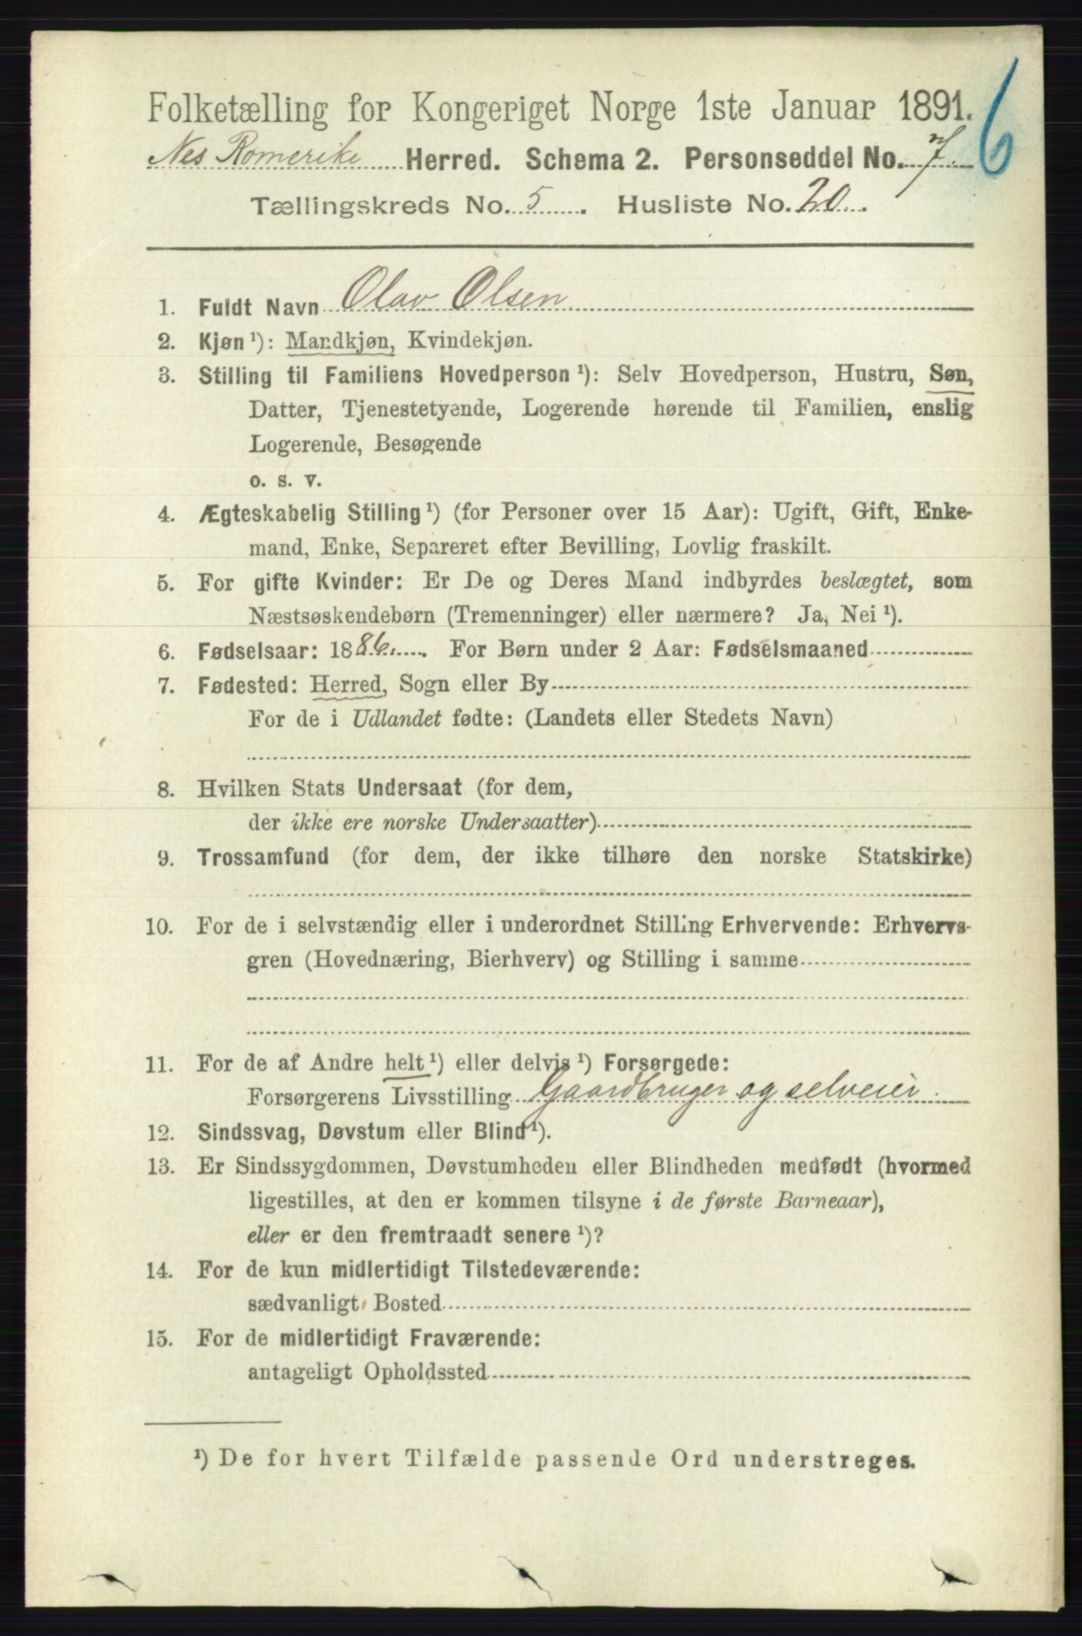 Folketælling for Kongeriget Norge 1ste Januar 1891.
6
Nes Romerike Herred. Schema 2. Personseddel No. 7.
Tællingskreds No. 5. Husliste No. 20.
1. Fuldt Navn Olav Olsen
2. Kjøn ¹): Mandkjøn, Kvindekjøn.
3. Stilling til Familiens Hovedperson ¹): Selv Hovedperson, Hustru, Søn,
Datter, Tjenestetyende, Logerende hørende til Familien, enslig
Logerende, Besøgende
o. s. v.
4. Ægteskabelig Stilling ¹) (for Personer over 15 Aar): Ugift, Gift, Enke-
mand, Enke, Separeret efter Bevilling, Lovlig fraskilt.
5. For gifte Kvinder: Er De og Deres Mand indbyrdes beslægtet, som
Næstsøskendebørn (Tremenninger) eller nærmere? Ja, Nei ¹).
6. Fødselsaar: 1886. For Børn under 2 Aar: Fødselsmaaned
7. Fødested: Herred, Sogn eller By
For de i Udlandet fødte: (Landets eller Stedets Navn)
8. Hvilken Stats Undersaat (for dem,
der ikke ere norske Undersaatter)
9. Trossamfund (for dem, der ikke tilhøre den norske Statskirke)
10. For de i selvstændig eller i underordnet Stilling Erhvervende: Erhvervs-
gren (Hovednæring, Bierhverv) og Stilling i samme
11. For de af Andre helt ¹) eller delvis ¹) Forsørgede:
Forsørgerens Livsstilling Gaardbruger og selveier.
12. Sindssvag, Døvstum eller Blind ¹).
13. Er Sindssygdommen, Døvstumheden eller Blindheden medfødt (hvormed
ligestilles, at den er kommen tilsyne i de første Barneaar),
eller er den fremtraadt senere ¹)?
14. For de kun midlertidigt Tilstedeværende:
sædvanligt Bosted
15. For de midlertidigt Fraværende:
antageligt Opholdssted
¹) De for hvert Tilfælde passende Ord understreges.